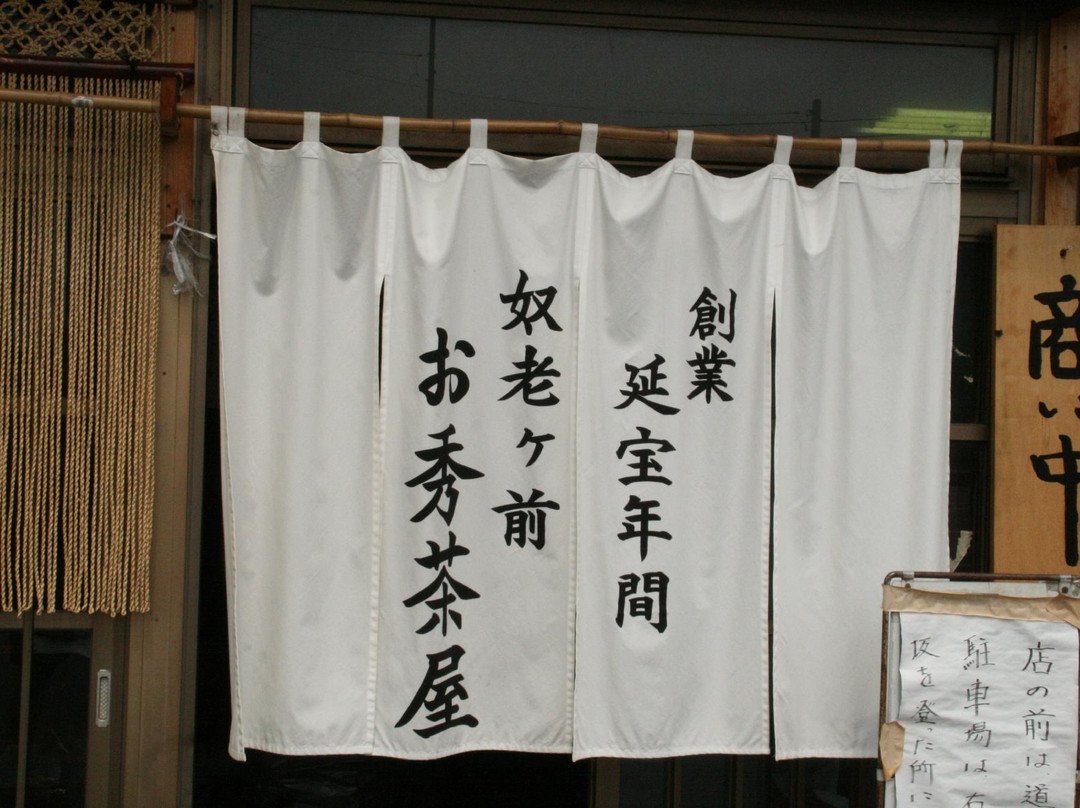 創業
延宝年間
奴老ヶ前
お秀茶屋
商い中
店の前は道
駐車場は右
坂を登った所に